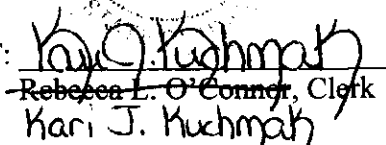 : Kari J. Kuchmak
Rebecca L. O'Connor, Clerk
Kari J. Kuchmak